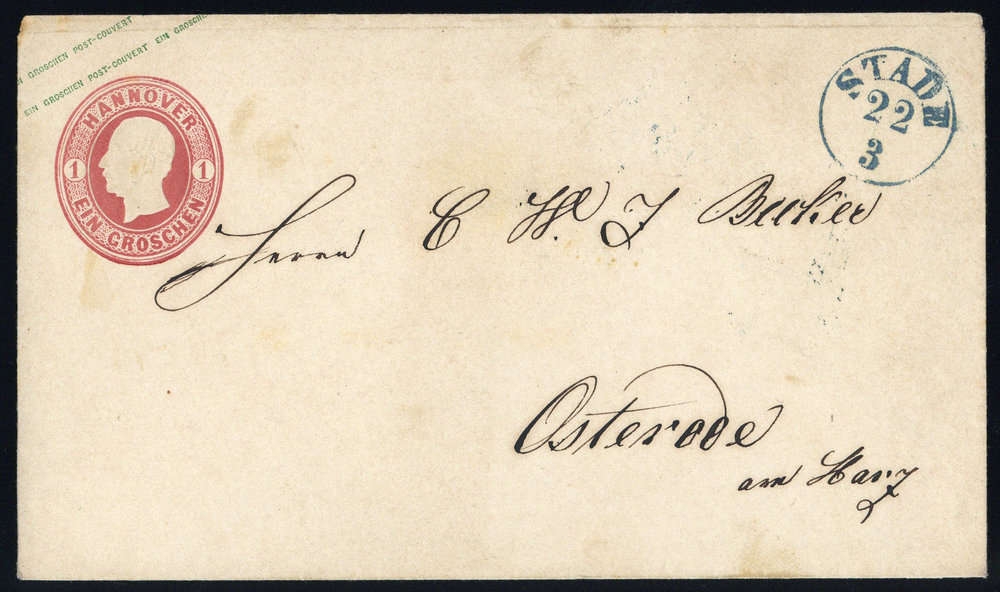 GROSCHEN POST-COUVERT
EIN GROSCHEN POST-COUVERT EIN GROSCHEN
HANNOVER
1 1
EIN GROSCHEN
STADE
22
3
Herrn C W. J Becker
Osterode
am Harz